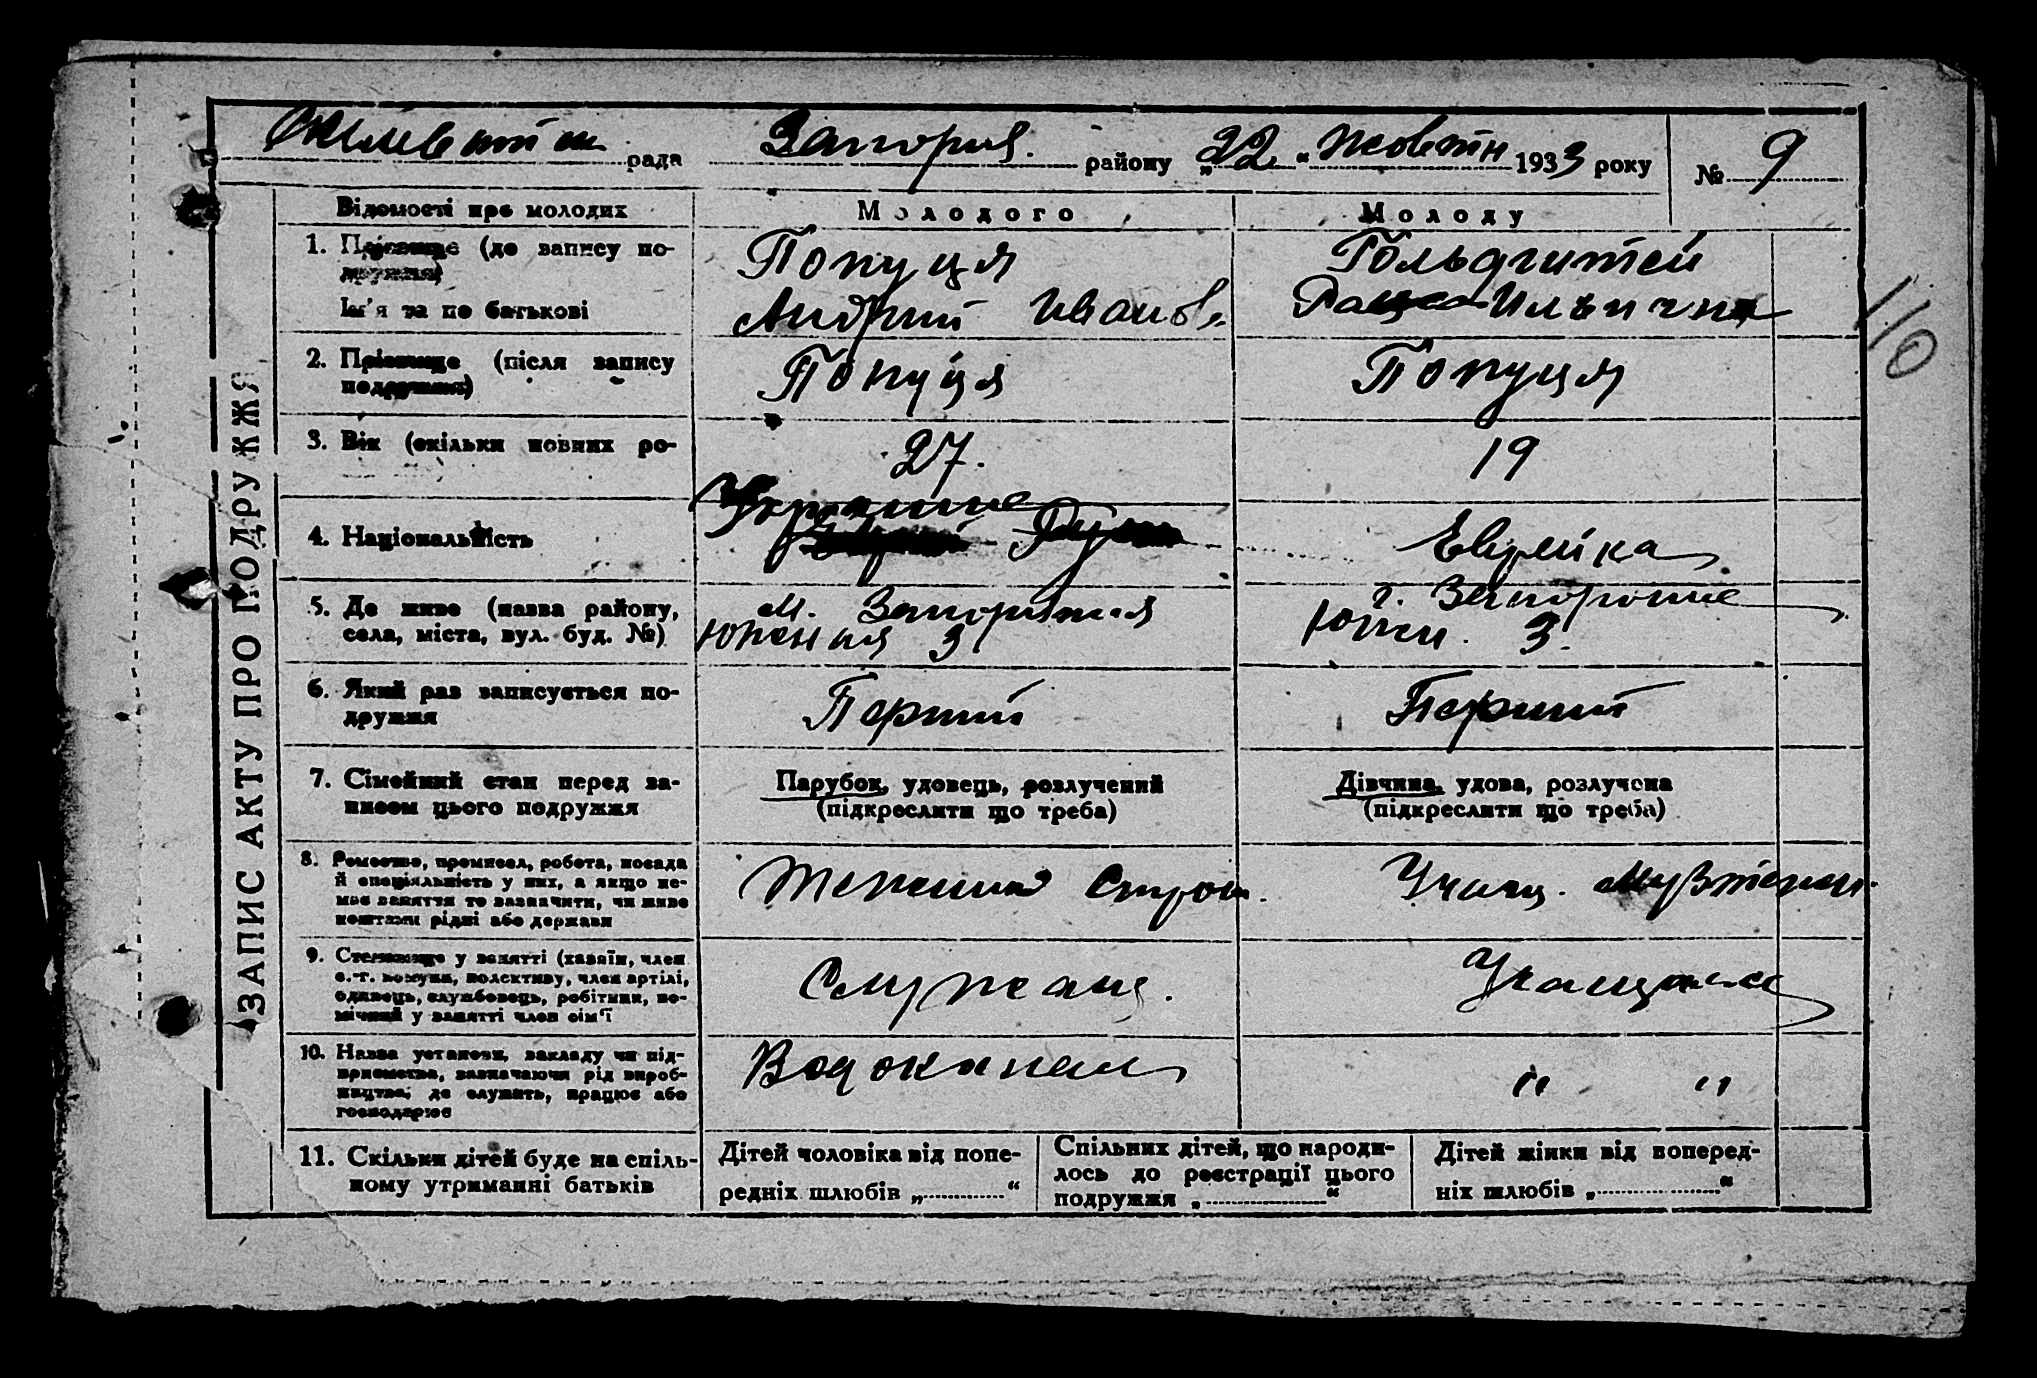 рада Запориж. району „22“ Жовтн 1933 року № 9
Відомості про молодих Молодого Молоду
1. Прізвище (до запису по-
дружжя)
Попуця Гольдштей
Ім'я та по батькові Андрий Иванов. Ильична
2. Прізвище (після запису
подружжя)
Попуця Попуця
3. Вік (скільки повних ро-
27. 19
4. Національність
Украине Еврейка
5. Де живе (назва району,
села, міста, вул. буд. №)
м. Запоріжжя
Южная 3
г. Запорожье
Южн. 3.
6. Який раз записується по-
дружжя
Перший Перший
7. Сімейний стан перед за-
писом цього подружжя
Парубок, удовець, розлучений
(підкреслити що треба)
Дівчина, удова, розлучена
(підкреслити що треба)
8. Ремество, промисел, робота, посада
й спеціяльність у них, а якщо не-
має заняття то зазначити, чи живе
коштами рідні або держави
Техник Строит. Учащ. Музтехни.
9. Становище у занятті (хазяїн, член
с.-г. комуни, колективу, член артілі,
одинець, службовець, робітник, по-
мічний у занятті член сім'ї
Служащ. Учащаяся
10. Назва установи, закладу чи під-
приємства, зазначаючи рід вироб-
ництва; де служить, працює або
господарює
Водоканал " "
11. Скільки дітей буде на спіль-
ному утриманні батьків
Дітей чоловіка від попе-
редніх шлюбів „ “
Спільних дітей, що народи-
лось до реєстрації цього
подружжя „ “
Дітей жінки від поперед-
ніх шлюбів „ “
ЗАПИС АКТУ ПРО ПОДРУЖЖЯ
110